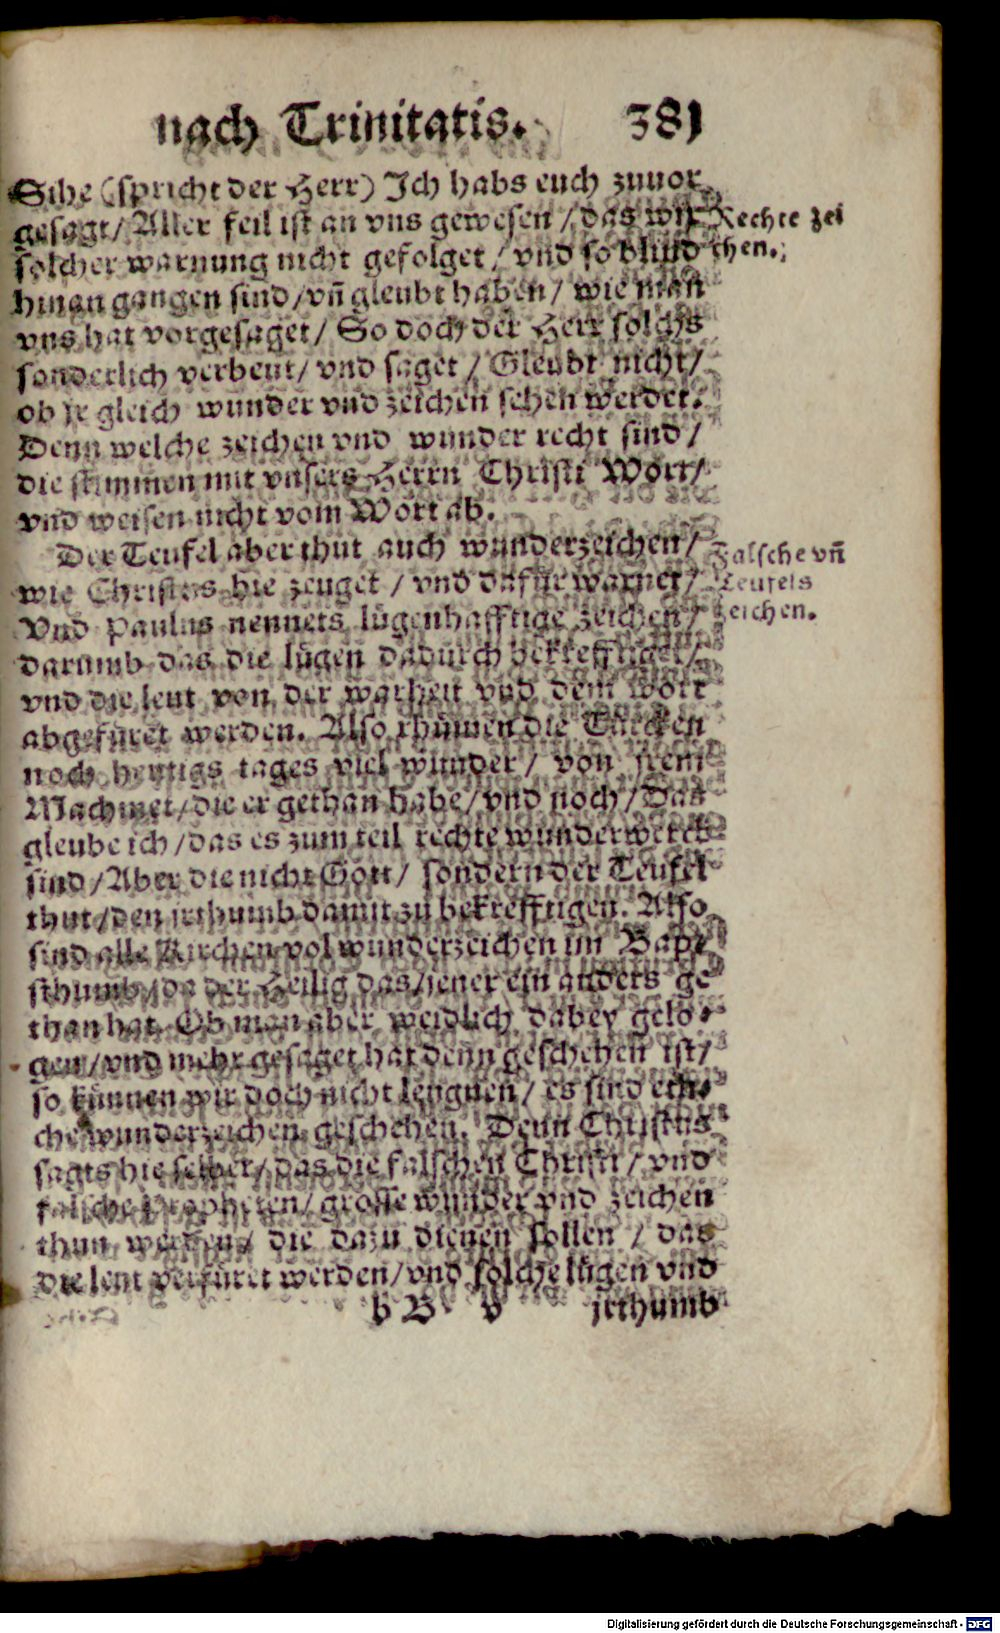 nach Trinitatis. 381
Sihe (spricht der Herr) Ich habs euch zuuor
gesagt / Aller feil ist an vns gewesen / das wir
solcher warnung nicht gefolget / vnd so blind
hinan gangen sind / vñ gleubt haben / wie man
vns hat vorgesaget / So doch der Herr solchs
sonderlich verbeut / vnd saget / Gleubt nicht /
ob jr gleich wunder vnd zeichen sehen werdet.
Denn welche zeichen vnd wunder recht sind /
die stimmen mit vnsers Herrn Christi Wort /
vnd weisen nicht vom Wort ab.
Rechte zei
chen.
Der Teufel aber thut auch wunderzeichen /
wie Christus hie zeuget / vnd dafur warnet /
Vnd Paulus nennets lügenhafftige zeichen /
darumb das die lügen dadurch bekrefftiget /
vnd die leut von der warheit vnd dem wort
abgefüret werden. Also rhümen die Türcken
noch heutigs tages viel wunder / von jrem
Machmet / die er gethan habe / vnd noch / Das
gleube ich / das es zum teil rechte wunderwerck
sind / Aber die nicht Gott / sondern der Teufel
thut / den jrthumb damit zu bekrefftigen. Also
sind alle Kirchen vol wunderzeichen im Bap⸗
sthumb / da der Heilig das / jener ein anders ge
than hat. Ob man aber weidlich dabey gelo⸗
gen / vnd mehr gesaget hat denn geschehen ist /
so künnen wir doch nicht leugnen / es sind etli⸗
che wunderzeichen geschehen. Denn Christus
sagts hie selber / das die falschen Christi / vnd
falsche Propheten / grosse wunder vnd zeichen
thun werden / die dazu dienen sollen / das
die leut verfüret werden / vnd solche lügen vnd
Falsche vñ
Teufels
zeichen.
b B v jrthumb
Digitalisierung gefördert durch die Deutsche Forschungsgemeinschaft - DFG